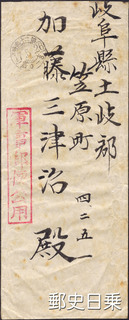 岐阜縣土岐郡
笠原町
四二五一
加藤三津治殿
軍事郵便
公用
郵史日乗